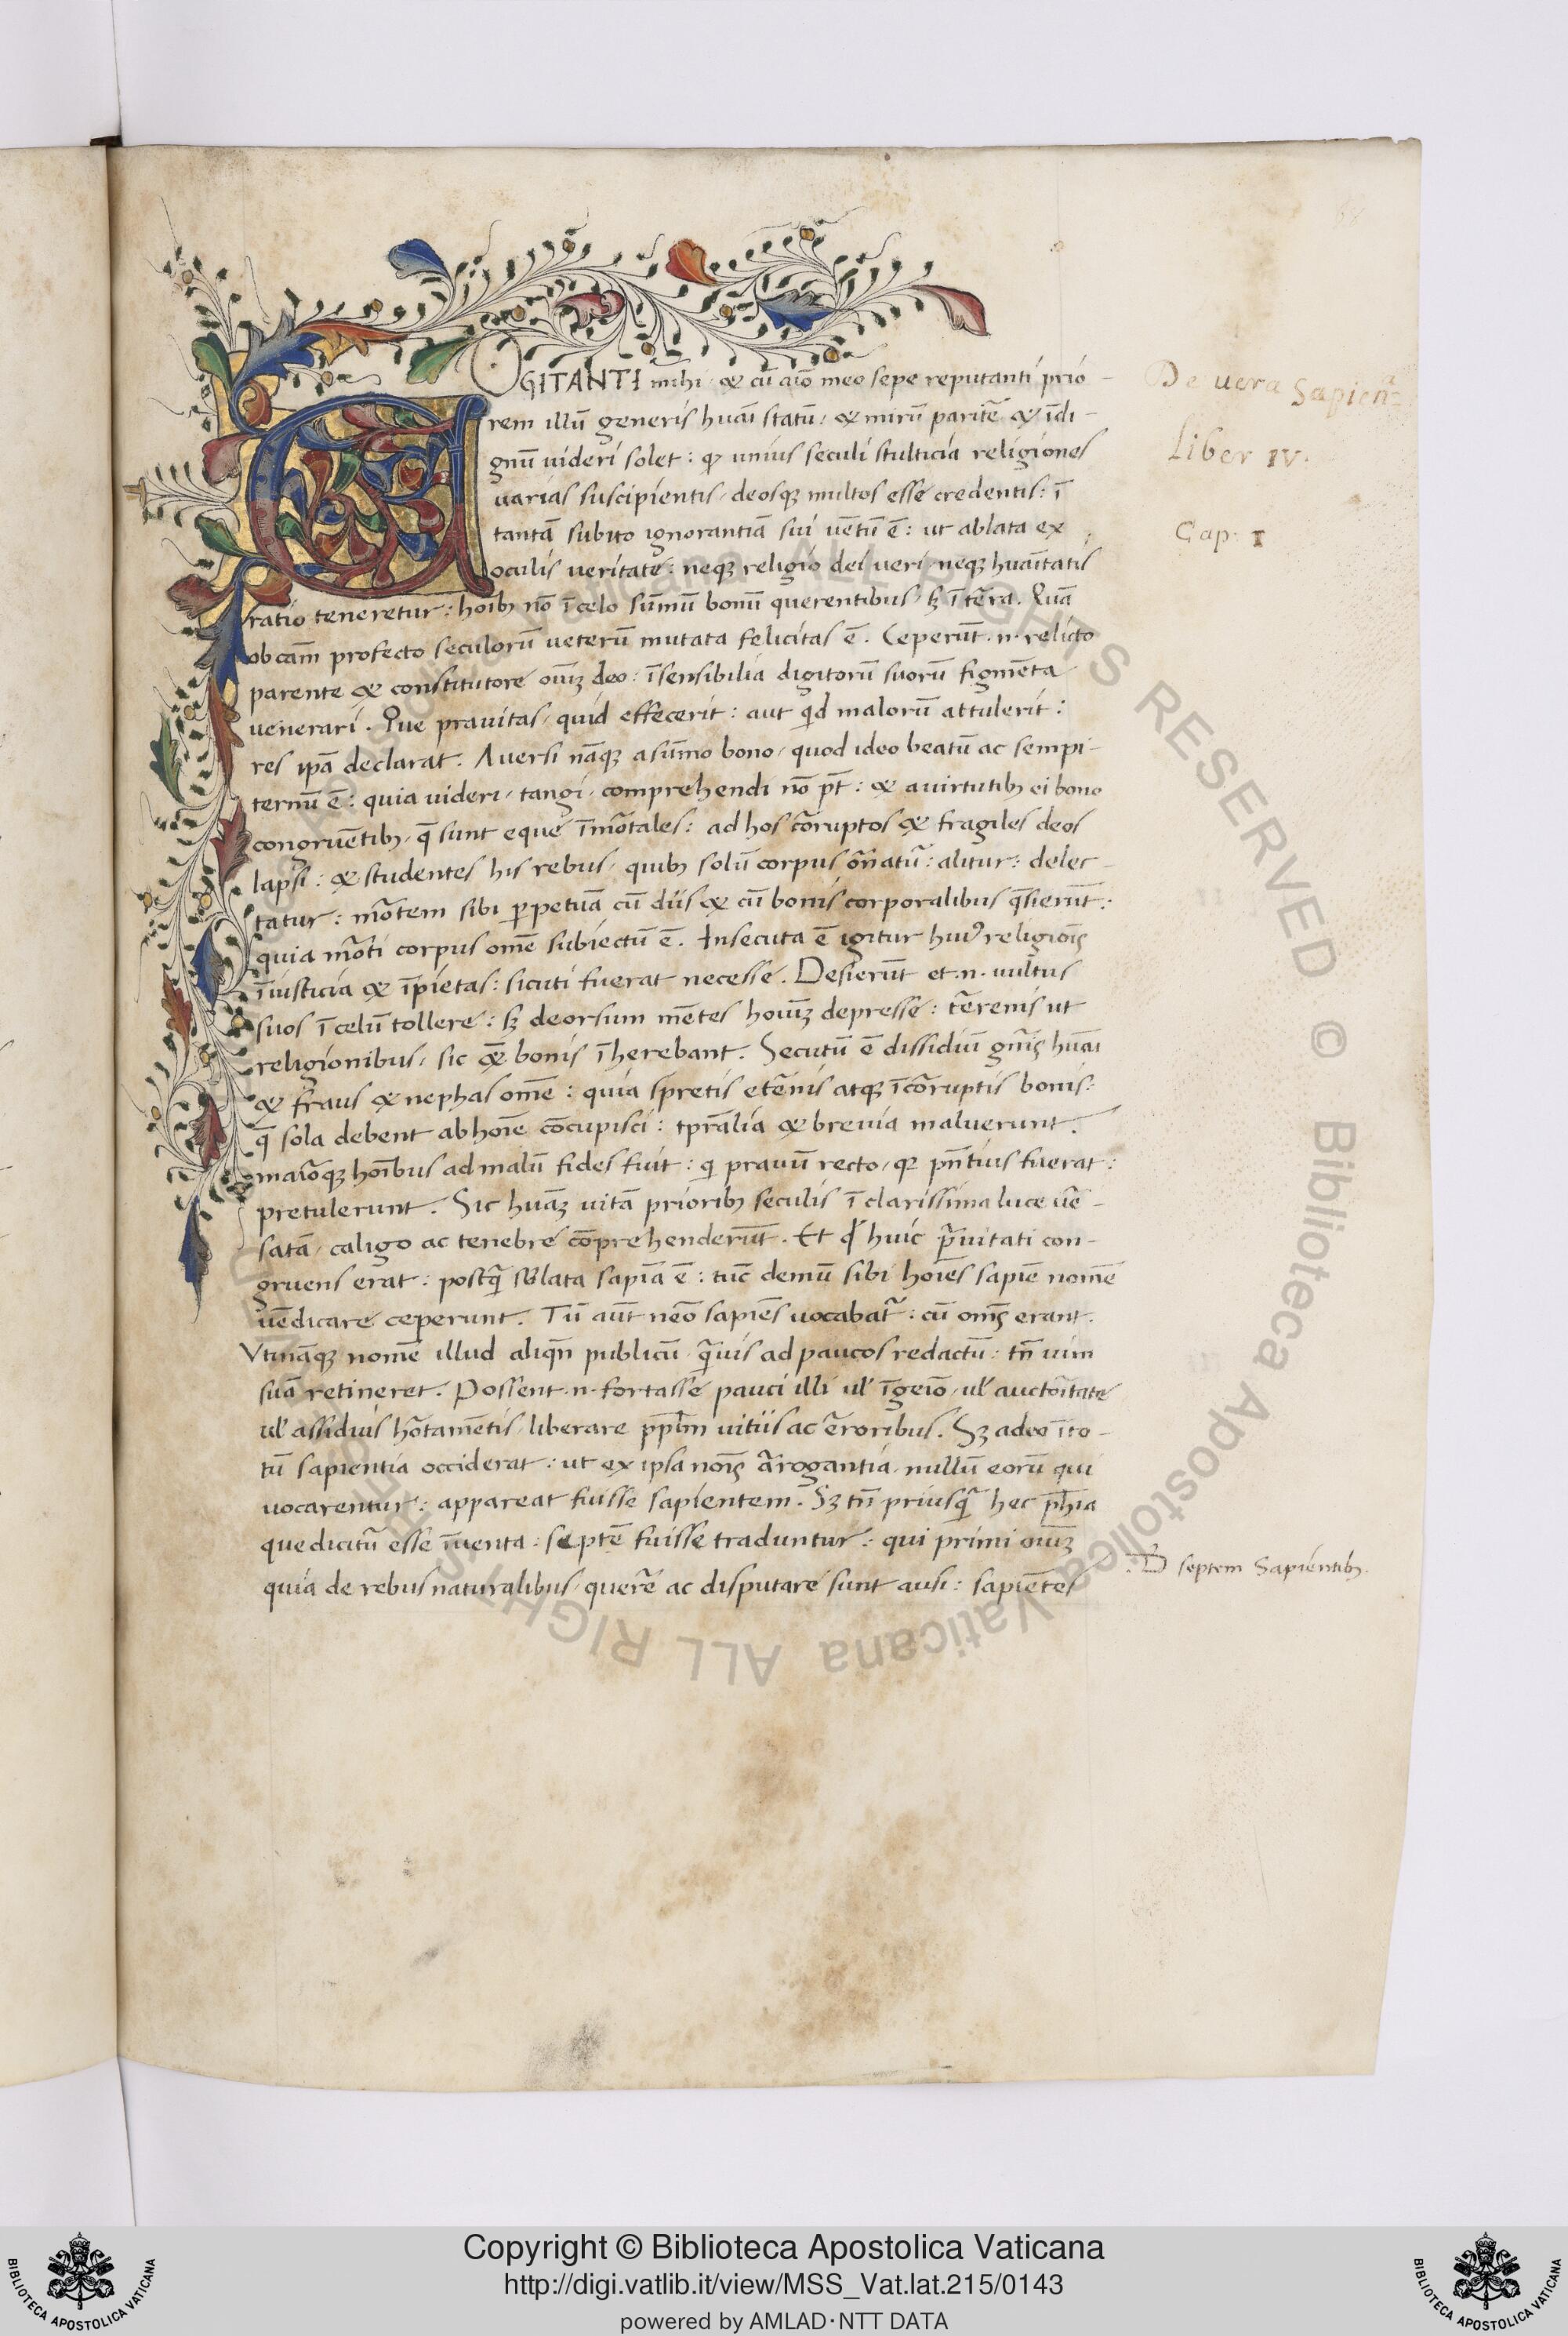 COGITANTI mihi · & cū aīo meo sepe reputanti prio-
rem illū generis huāi statū, & mirū paritē & īdi-
gnū uideri solet: qꝫ unius seculi stulticia religiones
uarias suscipientis, deosqꝫ multos esse credentis: ī
tantā subito ignorantiā sui uētū ē: ut ablata ex
oculis ueritate: neqꝫ religio dei ueri, neqꝫ huāītatis
ratio teneretur: hoībꝫ nō ī celo sūmū bonū querentibus, sꝫ ī tēra. Quā
ob cām profecto seculorū ueterū mutata felicitas ē. Ceperūt .n. relicto
parente & constitutore oīuꝫ deo: īsensibilia digitorū suorū figmēta
uenerari. Que prauitas, quid effecerit: aut qͥd malorū attulerit:
res ipā declarat. Auersi nāqꝫ a sūmo bono, quod ideo beatū ac sempi-
ternū ē: quia uideri, tangi, comprehendi nō pt̄: & a uirtutibꝫ ei bono
congruētibꝫ, q̄ sunt eque īmōtales: ad hos cōruptos & fragiles deos
lapsi: & studentes his rebus, quibꝫ solū corpus ōnatū: alitur: delec-
tatur: mōtem sibi ꝑpetuā cū diis & cū bonis corporalibus q̄sierūt:
quia mōti corpus ome subiectū ē. Insecuta ē igitur huiꝰ religiōis
īiusticia & īpietas: sicuti fuerat necesse. Desierūt et .n. uultus
suos ī celū tollere: sꝫ deorsum mētes hoīuꝫ depresse: tērenis ut
religionibus, sic &̄ bonis īherebant. Secutū ē dissidiū gn̄is huāi
& fraus & nephas ome: quia spretis etēnis atqꝫ īcōruptis bonis:
q̄ sola debent ab hoīe cōcupisci: tpr̄alia & breuia maluerunt.
maiōqꝫ hoībus ad malū fides fuit: qͥ prauū recto, qꝫ pn̄tius fuerat:
pretulerunt. Sic huāꝫ uitā prioribꝫ seculis ī clarissima luce uē-
satā, caligo ac tenebre cōprehenderūt. Et qđ huic prauitati con-
gruens erat: postqͣ sb̄lata sapīa ē: tūc demū sibi hoīes sapiē nomē
uēdicare ceperunt. Tū aūt nēo sapiēs uocabatͬ: cū om̄s erant.
Vtināqꝫ nomē illud aliqn̄ publicū, qͣuis ad paucos redactū: tn̄ uim
suā retineret. Possent .n. fortasse pauci illi uł īgeīo, uł auctōitate
uł assiduis hōtamētis, liberare pp̄lm uitiis ac ēroribus. Sꝫ adeo ī to-
tū sapientia occiderat: ut ex ipsa nōis ārogantia, nullū eorū qui
uocarentur: appareat fuisse sapientem. Sꝫ tn̄ priusqͣ hec ph̄ia
que dicitͬ esse īuenta: septē fuisse traduntur: qui primi oīuꝫ
quia de rebus naturalibus, querē ac disputare sunt ausi: sapiētes
De uera Sapien͂
Liber IV.
Cap. I
D septem Sapientibꝫ.
BIBLIOTECA APOSTOLICA VATICANA
Copyright © Biblioteca Apostolica Vaticana
http://digi.vatlib.it/view/MSS_Vat.lat.215/0143
powered by AMLAD·NTT DATA
BIBLIOTECA APOSTOLICA VATICANA
© Biblioteca Apostolica Vaticana ALL RIGHTS RESERVED